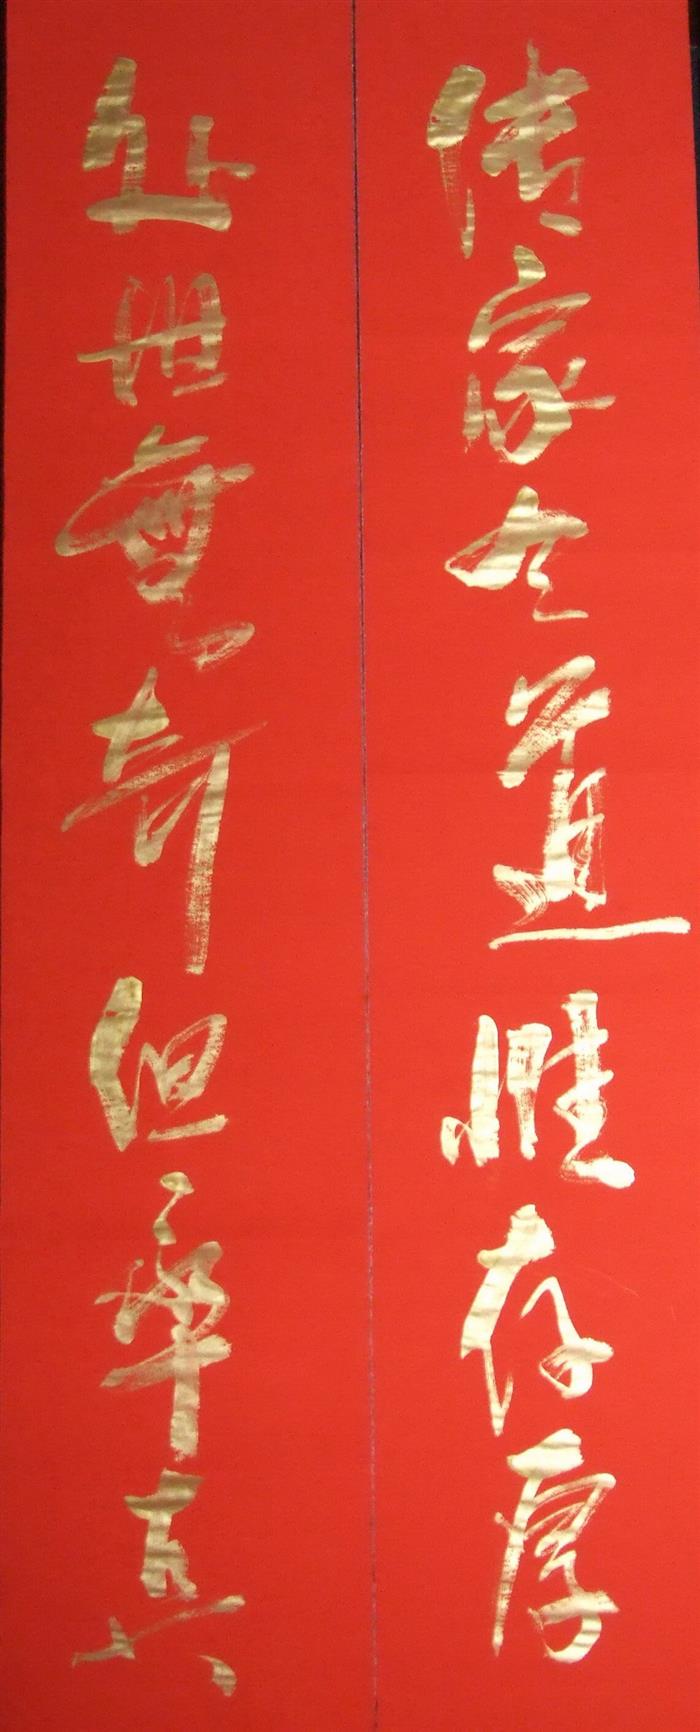 传家有道惟存厚
处世無奇但率真